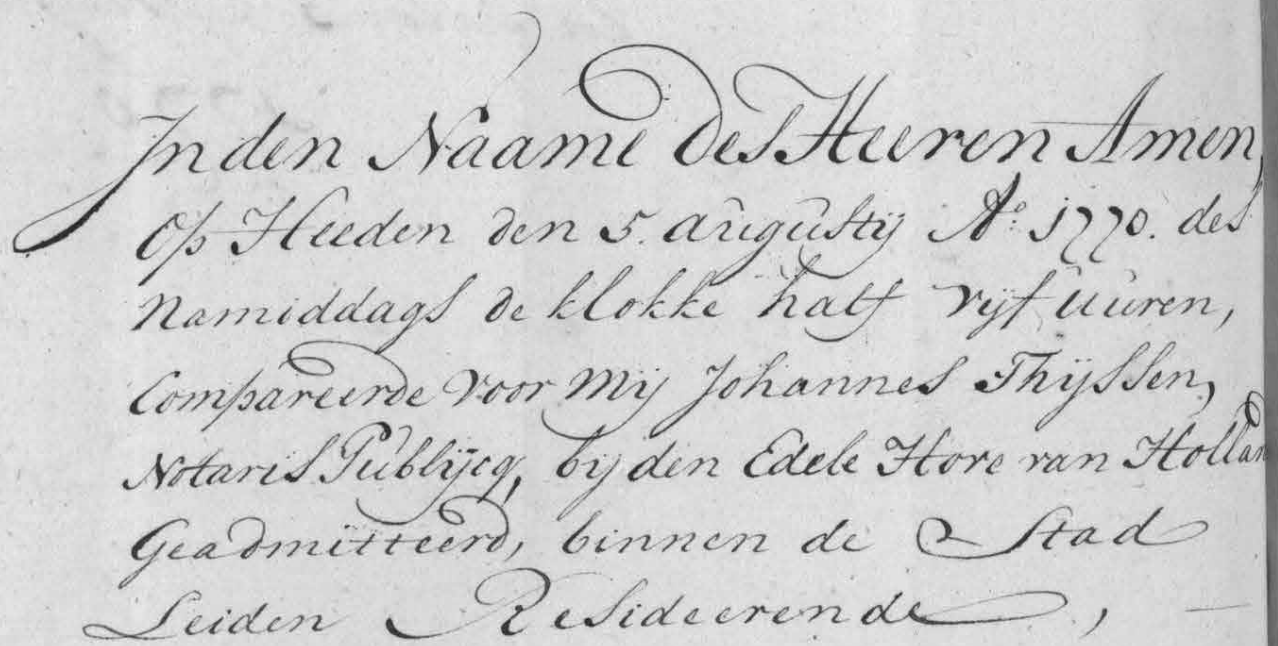 In den Naame des Heeren Amen,
Op Heeden den 5. augustij Ao. 1770. des
Namiddags de klokke half vijf uuren,
Compareerde voor Mij Johannes Thijssen,
Notaris Publijcq, bij den Edele Hove van Holland
Geadmitteerd, binnen de Stad
Leiden Resideerende,